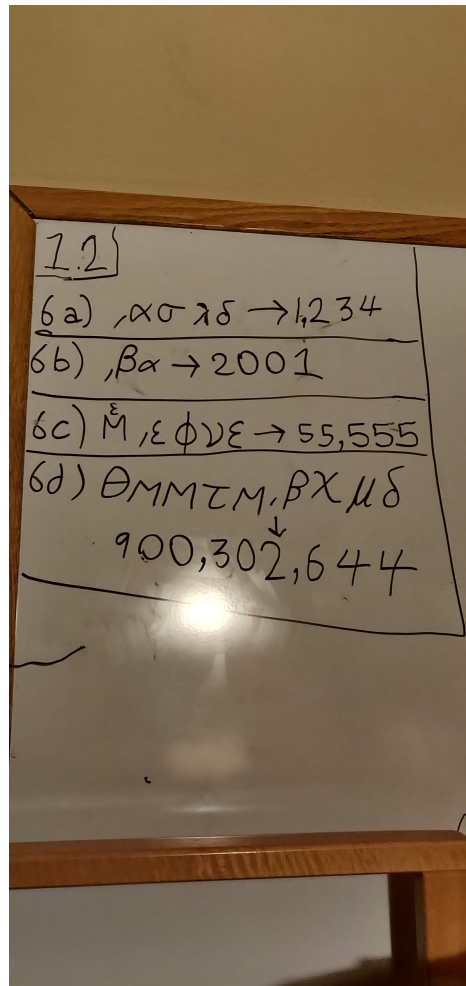 1.2
6a) ,ασλδ → 1,234
6b) ,βα → 2001
ε
6c) M ,εφνε → 55,555
6d) ΘMMτM,βΧμδ
↓
900,302,644